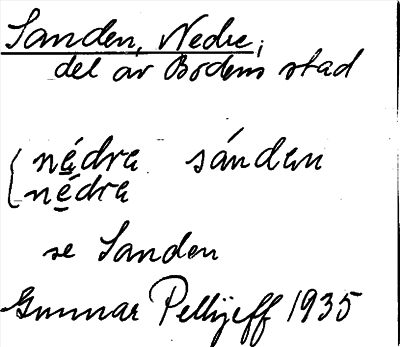 Sanden, Nedre;
del av Bodens stad
nẹ́dra sándan
nẹ́dra
se Sanden
Gunnar Pellijeff 1935